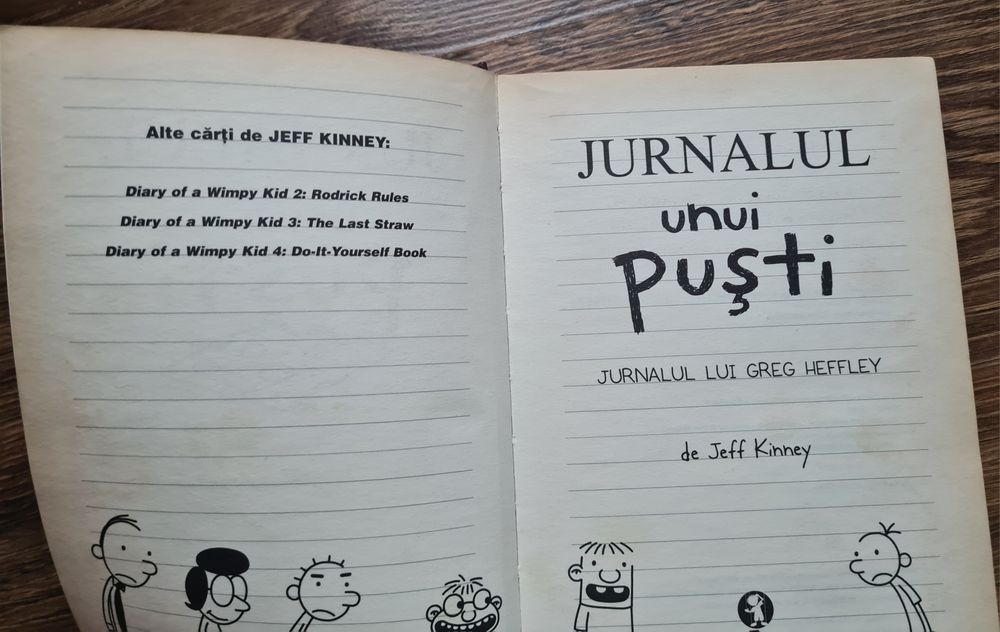 Alte cărți de JEFF KINNEY:
Diary of a Wimpy Kid 2: Rodrick Rules
Diary of a Wimpy Kid 3: The Last Straw
Diary of a Wimpy Kid 4: Do-It-Yourself Book
JURNALUL
unui
puşti
JURNALUL LUI GREG HEFFLEY
de Jeff Kinney